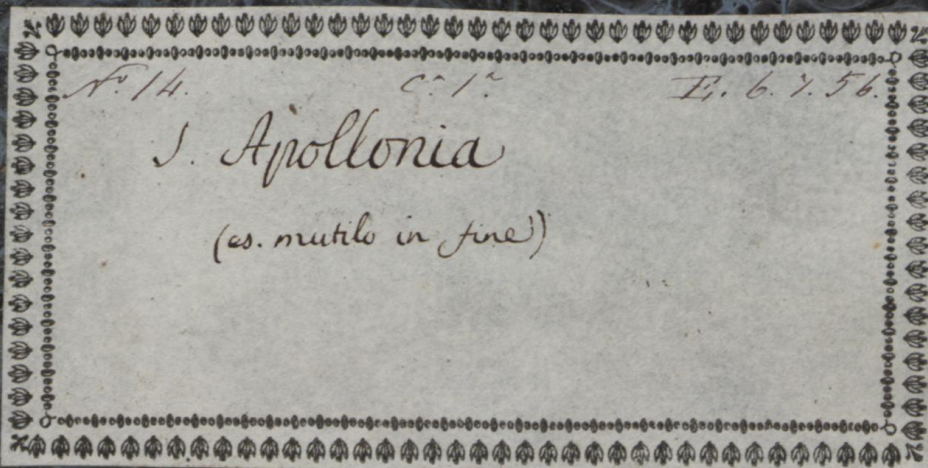 No. 14. Ca. 1a. E. 6. 7. 56.
S. Apollonia
(es. mutilo in fine)